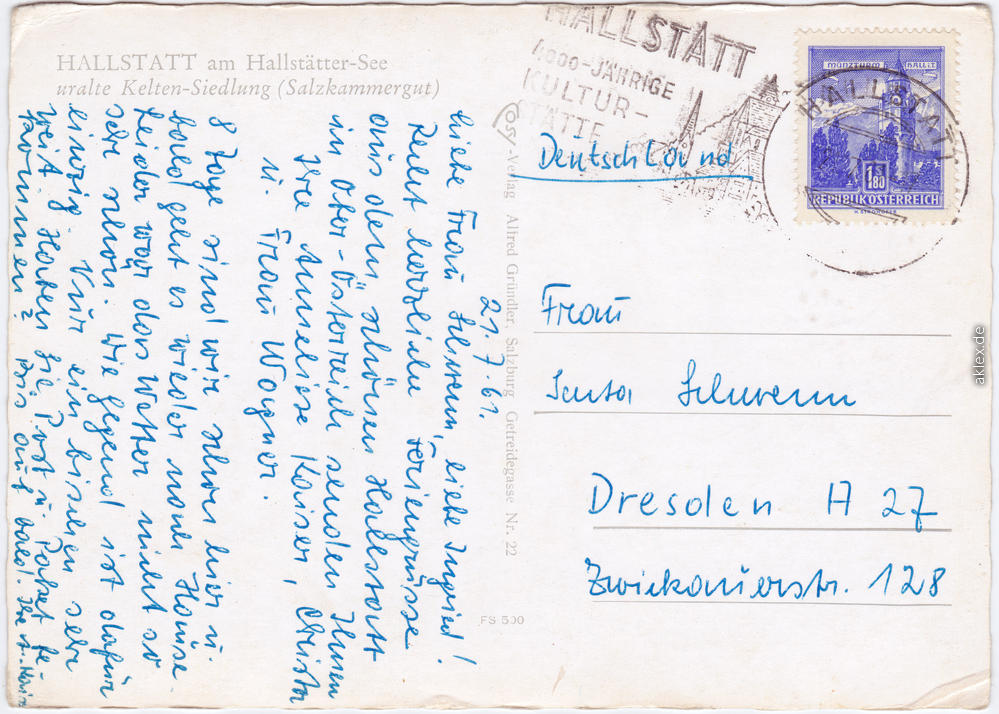 HALLSTATT am Hallstätter-See
uralte Kelten-Siedlung (Salzkammergut)
HALLSTATT
4000-JÄHRIGE
KULTUR-
STÄTTE
MÜNZTURM HALL i.T.
1 S 80
REPUBLIK ÖSTERREICH
HALLSTATT
Deutschland
Frau
Schwenn
Dresden A 27
Zwickauerstr. 128
Cosy-Verlag Alfred Gründler, Salzburg Getreidegasse Nr. 22
FS 500
21.7.61.
Liebe Frau Schwenn, liebe Ingrid!
Recht herzliche Feriengrüsse
aus dem schönen Hallstatt
in Ober-Österreich senden Ihnen
Ihre Anneliese Kaiser, Christa
u. Frau Wagner.
8 Tage sind wir schon hier u.
bald geht es wieder nach Hause
Leider war das Wetter nicht so
sehr schön. Die Gegend ist dafür
einzig. Nur ein bischen sehr
weit. Haben Sie Post u. Paket be-
kommen? Bis auf bald. Ihre A. Kaiser
aklex.de